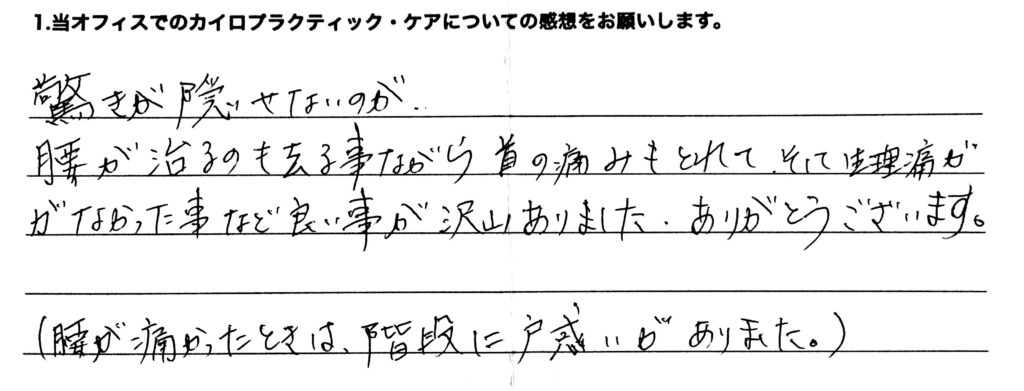 1.当オフィスでのカイロプラクティック・ケアについての感想をお願いします。
驚きが隠せないのが、
腰が治るのも去る事ながら首の痛みもとれて、そして生理痛が
がなかった事など良い事が沢山ありました。ありがとうございます。
(腰が痛かったときは、階段に戸惑いがありました。)